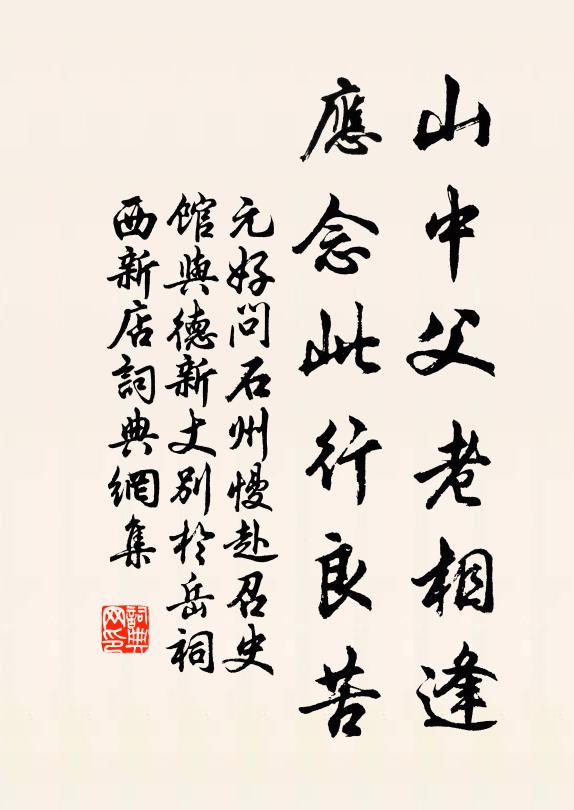 山中父老相逢
應念此行良苦
元好問石州慢赴召史
館與德新丈別於岳祠
西新店詞典網集
詞典
网印